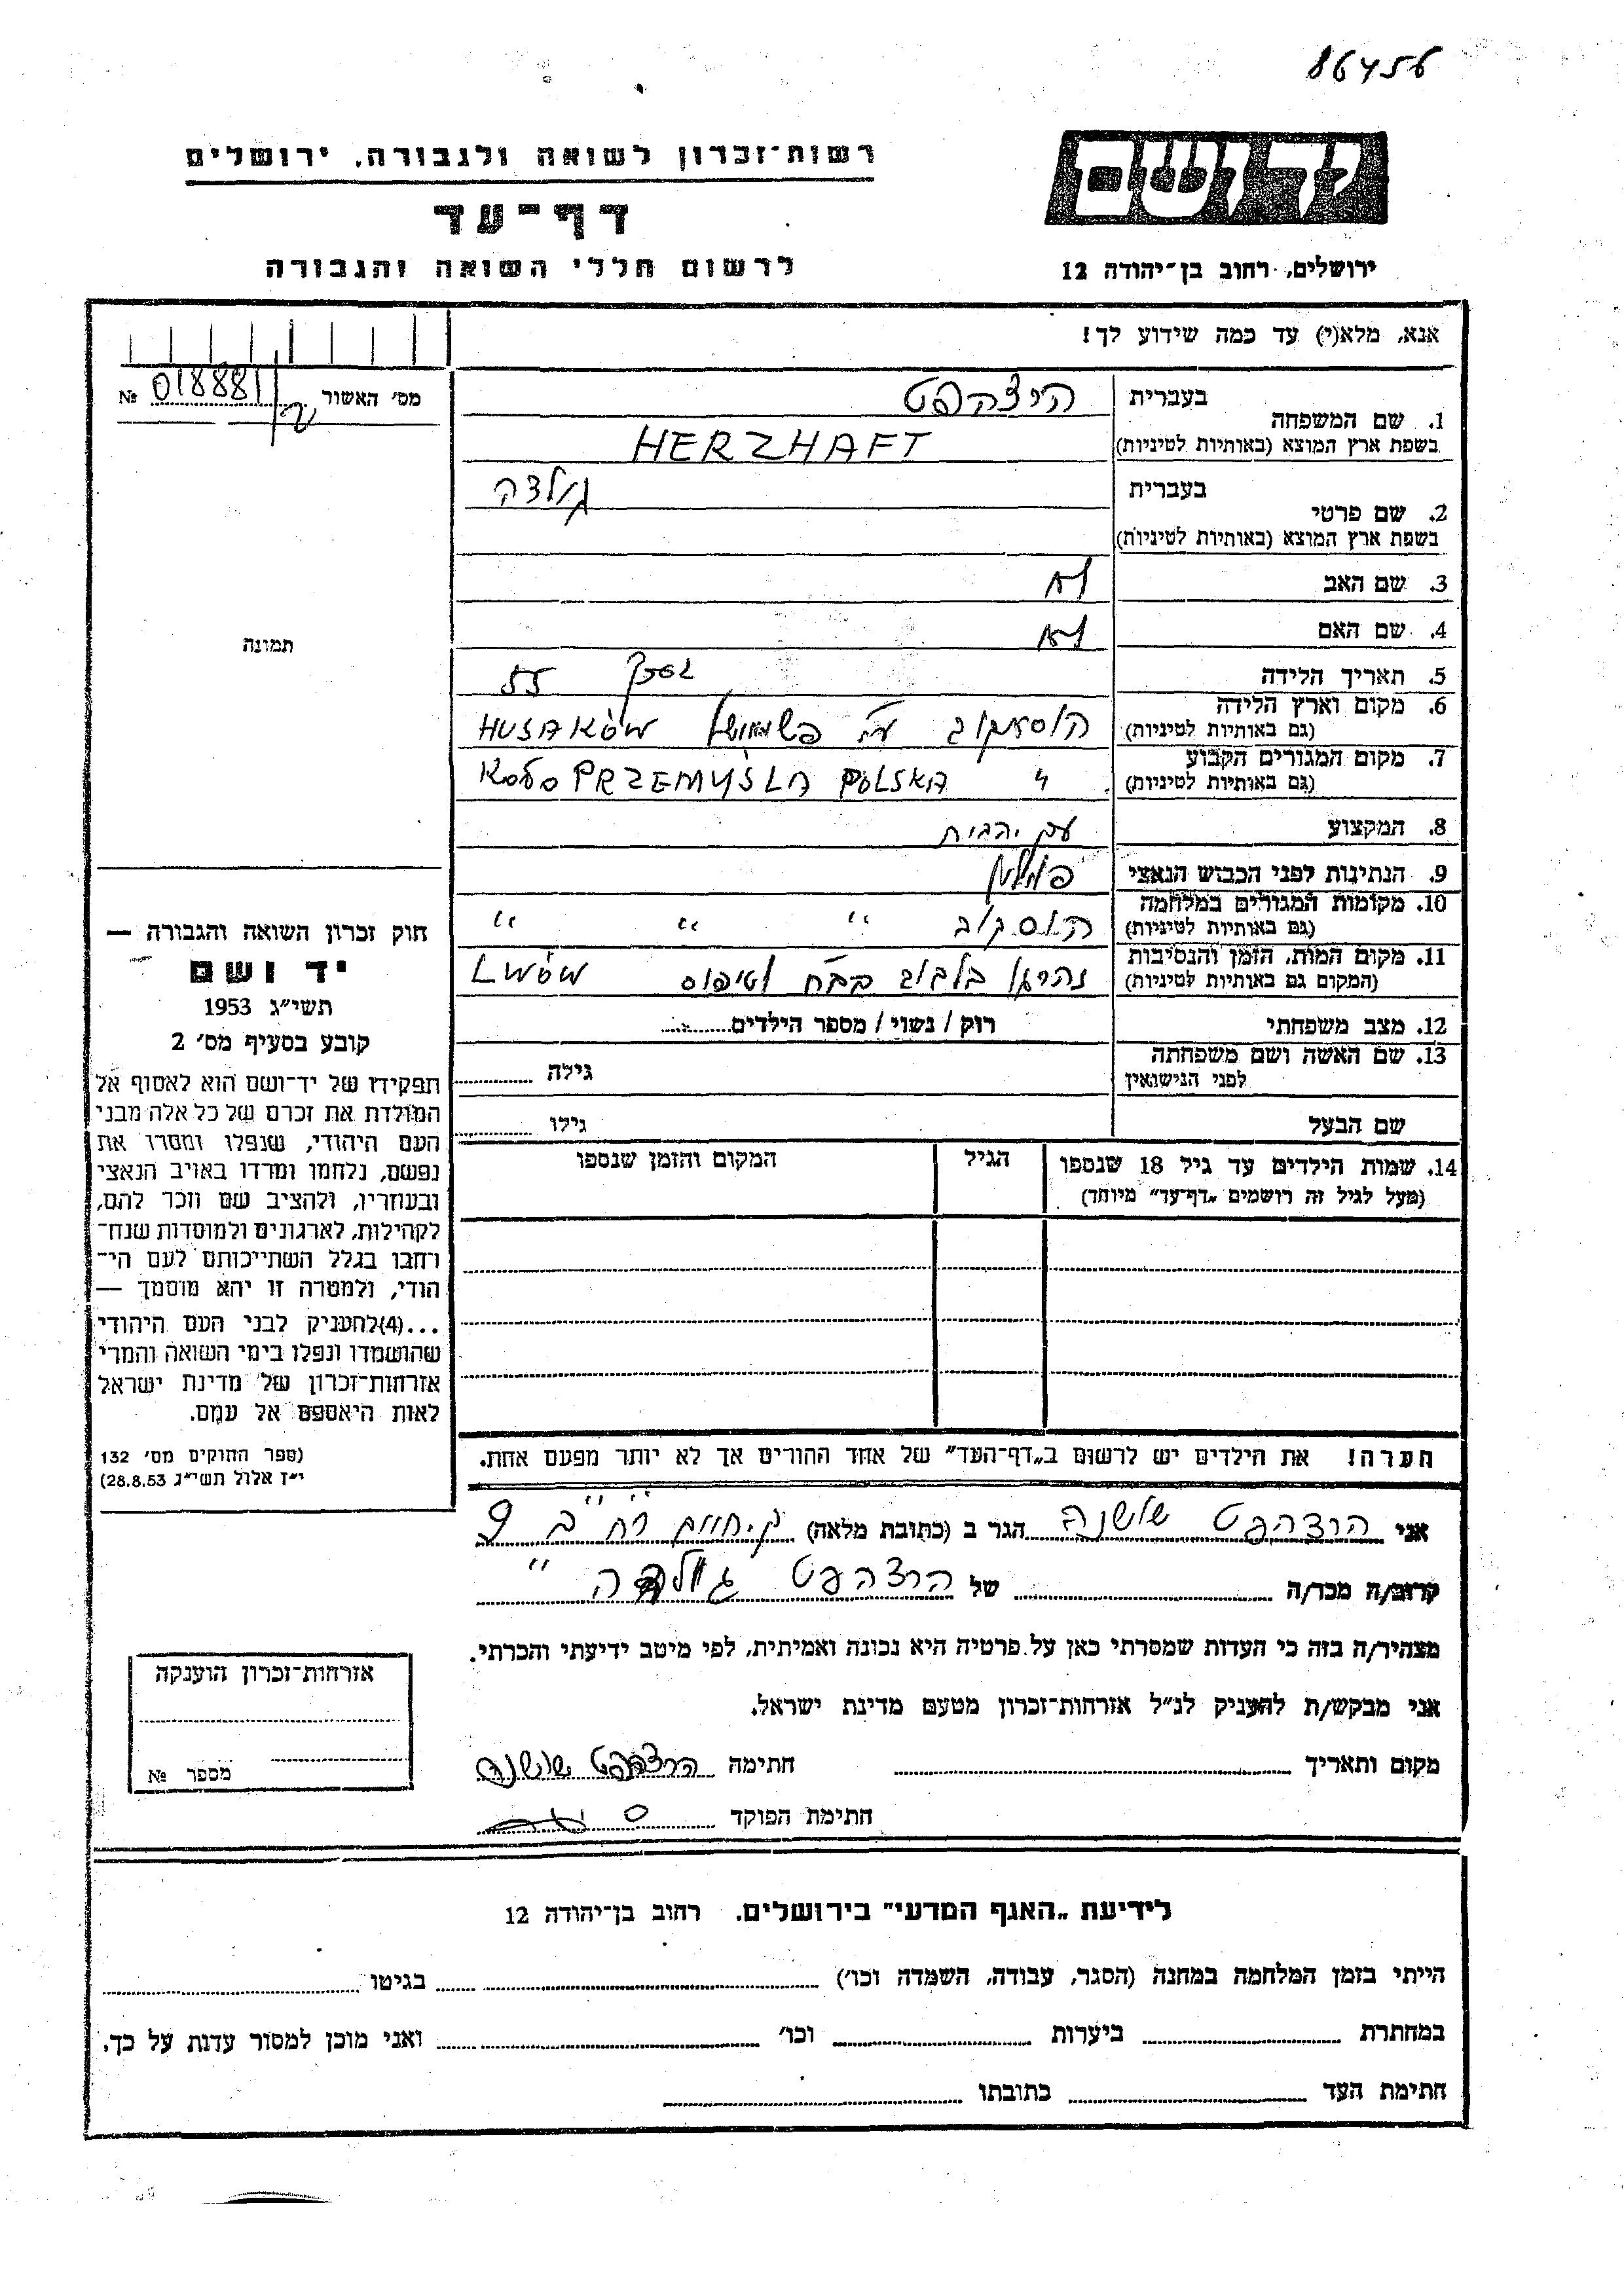 86456
רשות־זכרון לשואה ולגבורה, ירושלים
דף־עד
לרשום חללי השואה והגבורה
יד ושם
ירושלים, רחוב בן־יהודה 12
אנא, מלא(י) עד כמה שידוע לך!
מס׳ האשור № 018881
תמונה
1. שם המשפחה בעברית הירצהפט
בשפת ארץ המוצא (באותיות לטיניות) HERZHAFT
2. שם פרטי בעברית גולדה
בשפת ארץ המוצא (באותיות לטיניות)
3. שם האב לא
4. שם האם לא
5. תאריך הלידה בערך 55
6. מקום וארץ הלידה (גם באותיות לטיניות) הוסקוב ע״י פשמישל HUSAKÓW
7. מקום המגורים הקבוע (גם באותיות לטיניות) " KOŁO PRZEMYŚLA POLSKA
8. המקצוע עקרת הבית
9. הנתינות לפני הכבוש הנאצי פולין
10. מקומות המגורים במלחמה (גם באותיות לטיניות) הוסקוב " " "
11. מקום המות, הזמן והנסיבות (המקום גם באותיות לטיניות) נהרגו בלבוב LWÓW
12. מצב משפחתי רוק / נשוי / מספר הילדים
13. שם האשה ושם משפחתה לפני הנישואין גילה
שם הבעל גילו
14. שמות הילדים עד גיל 18 שנספו הגיל המקום והזמן שנספו
(מעל לגיל זה רושמים „דף־עד״ מיוחד)
חוק זכרון השואה והגבורה —
יד ושם
תשי״ג 1953
קובע בסעיף מס׳ 2
תפקידו של יד־ושם הוא לאסוף אל
המולדת את זכרם של כל אלה מבני
העם היהודי, שנפלו ומסרו את
נפשם, נלחמו ומרדו באויב הנאצי
ובעוזריו, ולהציב שם וזכר להם,
לקהילות, לארגונים ולמוסדות שנח־
רחבו בגלל השתייכותם לעם הי־
הודי, ולמטרה זו יהא מוסמך —
...(4) להעניק לבני העם היהודי
שהושמדו ונפלו בימי השואה והמרי
אזרחות־זכרון של מדינת ישראל
לאות היאספם אל עמם.
(ספר החוקים מס׳ 132
י״ז אלול תשי״ג 28.8.53)
הערה! את הילדים יש לרשום ב„דף־העד״ של אחד ההורים אך לא יותר מפעם אחת.
אני הרצהפט שושנה הגר ב (כתובת מלאה) ק. חיים רח׳ ב 9
קרוב/ה מכר/ה של הרצהפט גולדה
מצהיר/ה בזה כי העדות שמסרתי כאן על פרטיה היא נכונה ואמיתית, לפי מיטב ידיעתי והכרתי.
אני מבקש/ת להעניק לנ״ל אזרחות־זכרון מטעם מדינת ישראל.
מקום ותאריך חתימה הרצהפט שושנה
חתימת הפוקד
אזרחות־זכרון הוענקה
מספר №
לידיעת „האגף המדעי״ בירושלים. רחוב בן־יהודה 12
הייתי בזמן המלחמה במחנה (הסגר, עבודה, השמדה וכו׳) בגיטו
במחתרת ביערות וכו׳ ואני מוכן למסור עדות על כך.
חתימת העד כתובתו